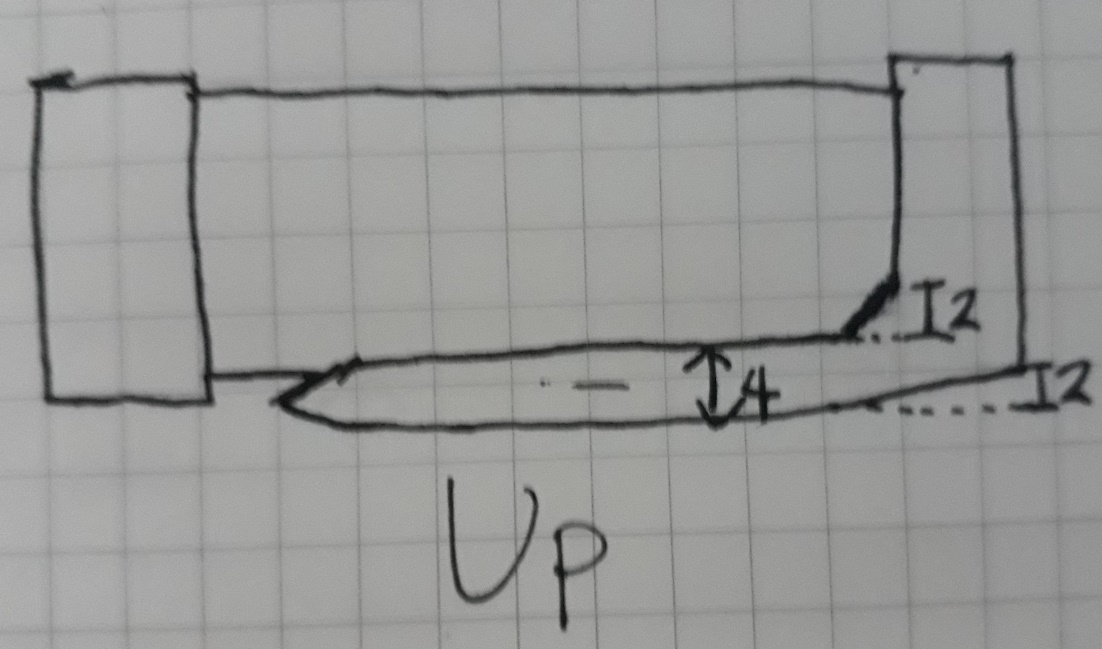 I2
4
I2
Up